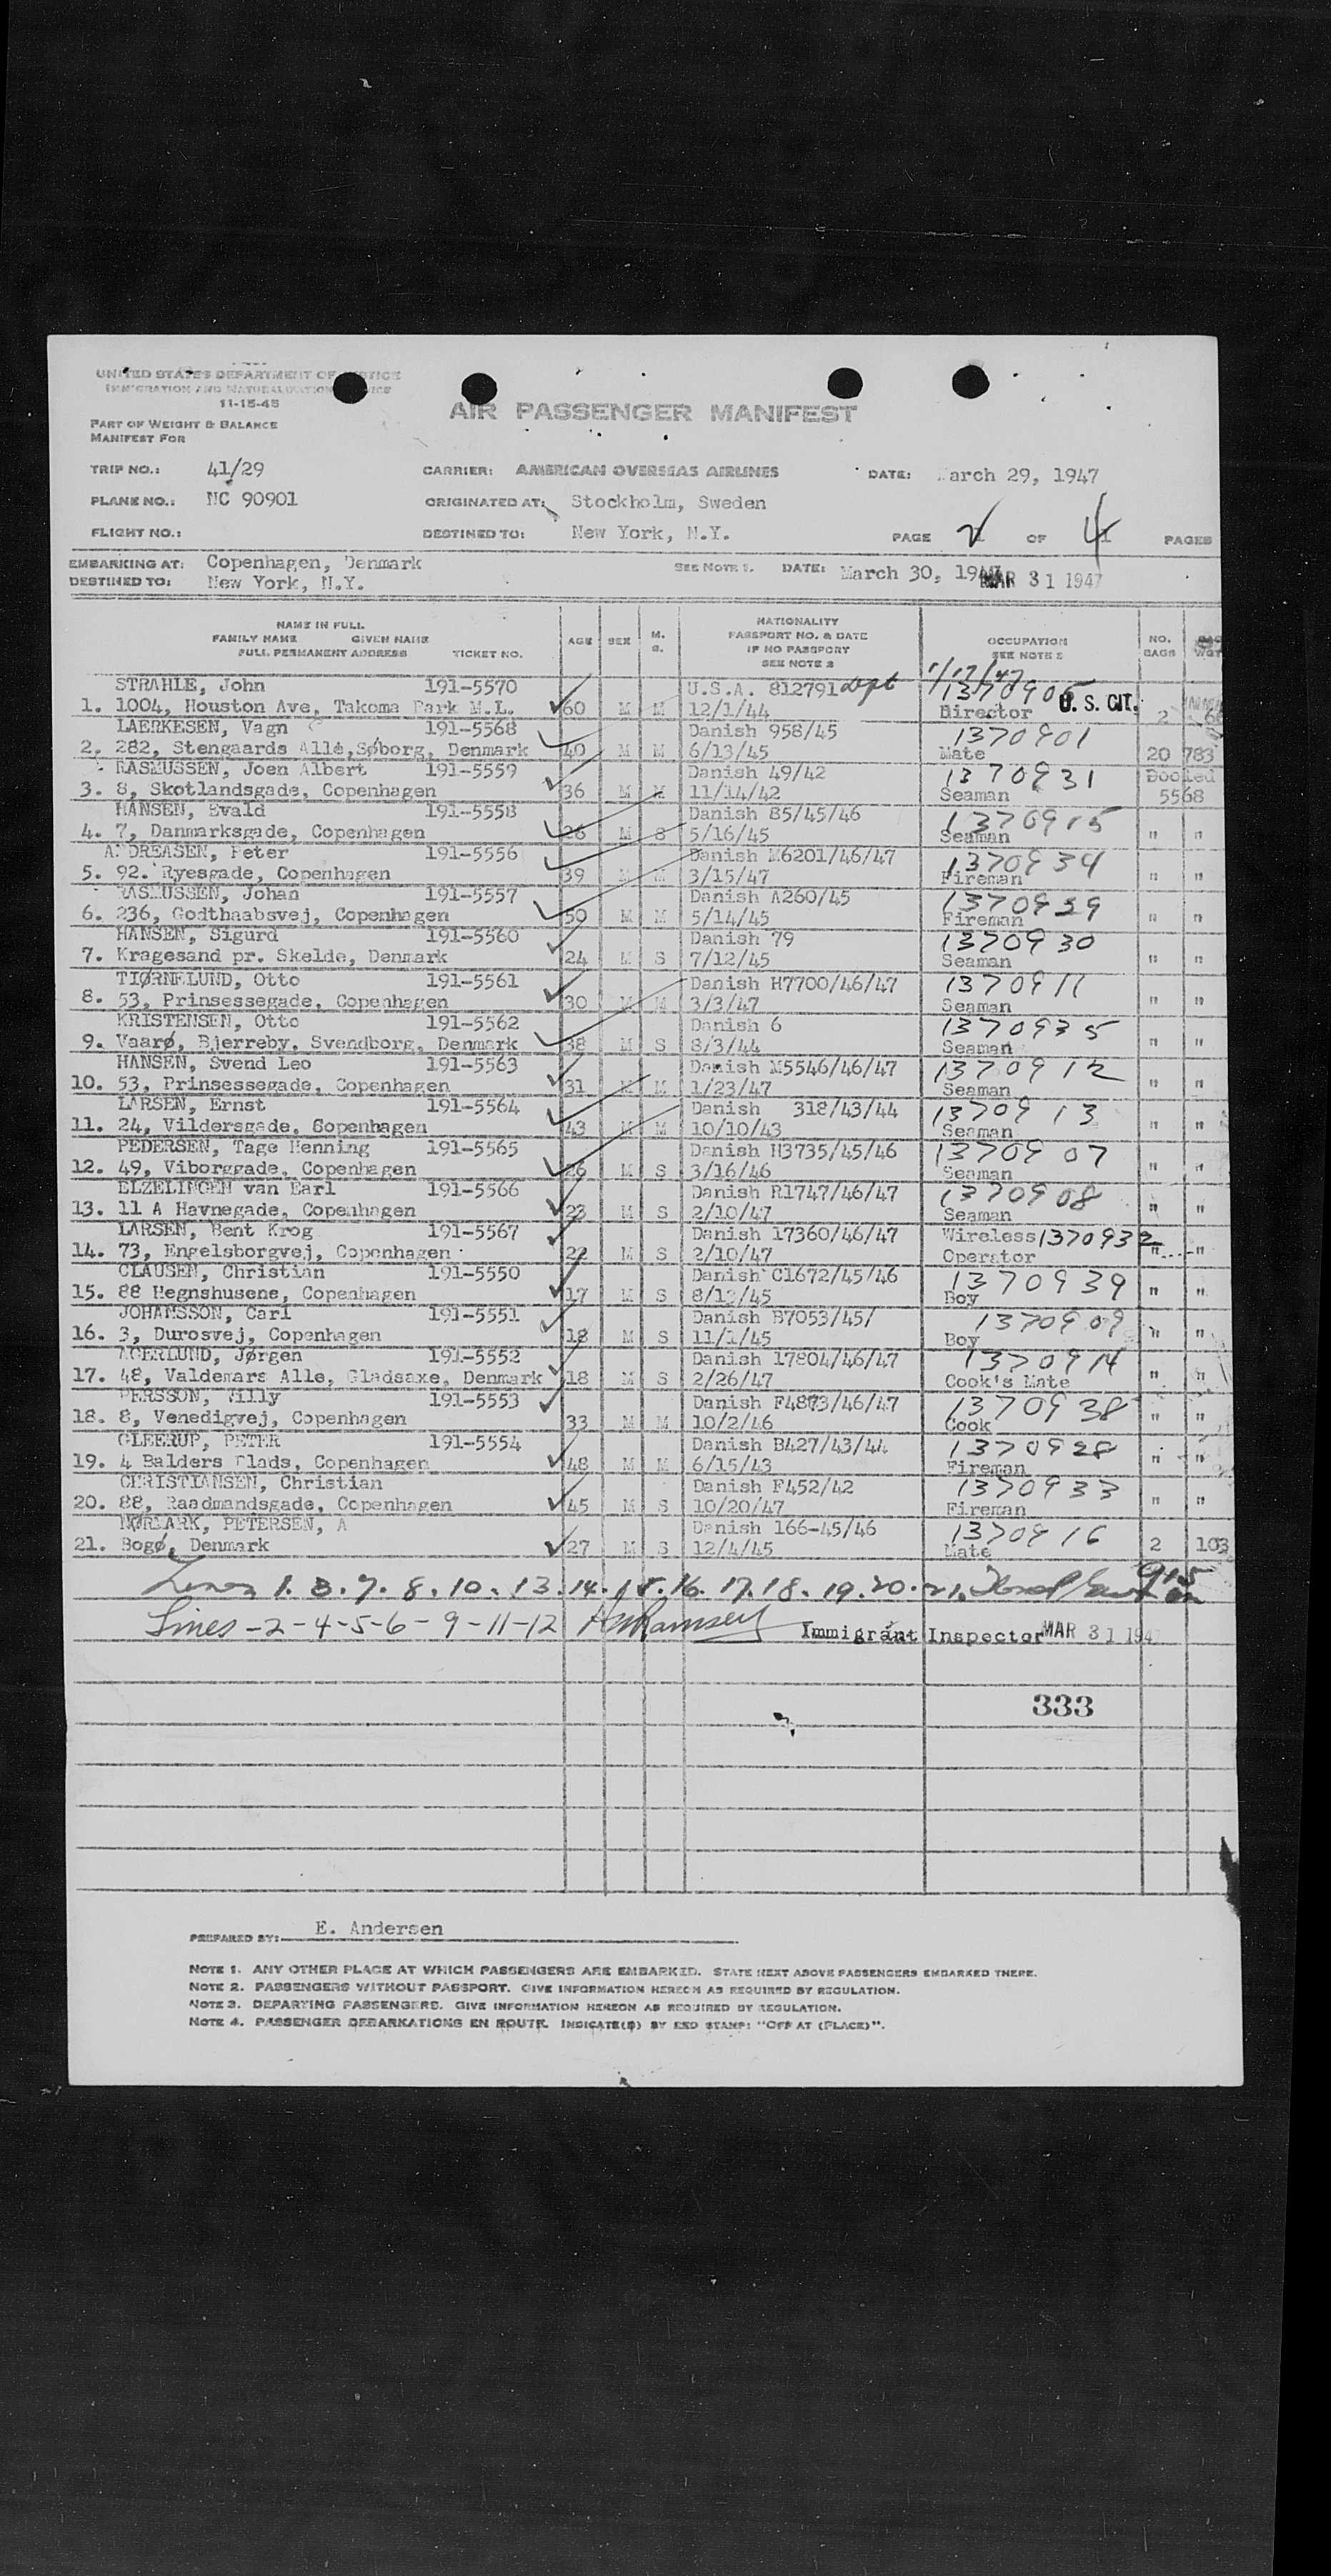 UNITED STATES DEPARTMENT OF JUSTICE
IMMIGRATION AND NATURALIZATION SERVICE
11-15-45
AIR PASSENGER MANIFEST
PART OF WEIGHT & BALANCE
MANIFEST FOR
TRIP NO.: 41/29 CARRIER: AMERICAN OVERSEAS AIRLINES DATE: March 29, 1947
PLANE NO.: NC 90901 ORIGINATED AT: Stockholm, Sweden
FLIGHT NO.: DESTINED TO: New York, N.Y. PAGE 2 OF 4 PAGES
EMBARKING AT: Copenhagen, Denmark SEE NOTE 1. DATE: March 30, 1947 MAR 31 1947
DESTINED TO: New York, N.Y.
NAME IN FULL
FAMILY NAME GIVEN NAME
FULL PERMANENT ADDRESS TICKET NO. AGE SEX M. S. NATIONALITY PASSPORT NO. & DATE IF NO PASSPORT SEE NOTE 2 OCCUPATION SEE NOTE 2 NO. BAGS BAG WGT
1/17/47
STRAHLE, John 191-5570 U.S.A. 812791 dept 1370906 U. S. CIT.
1. 1004, Houston Ave, Takoma Park M.L. 60 M M 12/1/44 Director 2 66
LAERKESEN, Vagn 191-5568 Danish 958/45 1370901
2. 282, Stengaards Allé, Søborg, Denmark 40 M M 6/13/45 Mate 20 783
RASMUSSEN, Joen Albert 191-5559 Danish 49/42 1370931 Pooled
3. 8, Skotlandsgade, Copenhagen 36 M M 11/14/42 Seaman 5568
HANSEN, Evald 191-5558 Danish 85/45/46 1370915
4. 7, Danmarksgade, Copenhagen 26 M S 5/16/45 Seaman " "
ANDREASEN, Peter 191-5556 Danish M6201/46/47 1370934
5. 92. Ryesgade, Copenhagen 39 M M 3/15/47 Fireman " "
RASMUSSEN, Johan 191-5557 Danish A260/45 1370929
6. 236, Godthaabsvej, Copenhagen 50 M M 5/14/45 Fireman " "
HANSEN, Sigurd 191-5560 Danish 79 1370930
7. Kragesand pr. Skelde, Denmark 24 M S 7/12/45 Seaman " "
TIØRNELUND, Otto 191-5561 Danish H7700/46/47 1370911
8. 53, Prinsessegade, Copenhagen 30 M M 3/3/47 Seaman " "
KRISTENSEN, Otto 191-5562 Danish 6 1370935
9. Vaarø, Bjerreby, Svendborg, Denmark 38 M S 8/3/44 Seaman " "
HANSEN, Svend Leo 191-5563 Danish M5546/46/47 1370912
10. 53, Prinsessegade, Copenhagen 31 M M 1/23/47 Seaman " "
LARSEN, Ernst 191-5564 Danish 318/43/44 1370913
11. 24, Vildersgade, Copenhagen 43 M M 10/10/43 Seaman " "
PEDERSEN, Tage Henning 191-5565 Danish H3735/45/46 1370907
12. 49, Viborggade, Copenhagen 26 M S 3/16/46 Seaman " "
ELZELINGEN van Earl 191-5566 Danish R1747/46/47 1370908
13. 11 A Havnegade, Copenhagen 23 M S 2/10/47 Seaman " "
LARSEN, Bent Krog 191-5567 Danish 17360/46/47 Wireless 1370932
14. 73, Engelsborgvej, Copenhagen 22 M S 2/10/47 Operator " "
CLAUSEN, Christian 191-5550 Danish C1672/45/46 1370939
15. 88 Hegnshusene, Copenhagen 17 M S 8/12/45 Boy " "
JOHANSSON, Carl 191-5551 Danish B7053/45/ 1370909
16. 3, Durosvej, Copenhagen 18 M S 11/1/45 Boy " "
AGERLUND, Jørgen 191-5552 Danish 17804/46/47 1370914
17. 48, Valdemars Alle, Gladsaxe, Denmark 18 M S 2/26/47 Cook's Mate " "
PERSSON, Willy 191-5553 Danish F4873/46/47 1370938
18. 8, Venedigvej, Copenhagen 33 M M 10/2/46 Cook " "
GLEERUP, PETER 191-5554 Danish B427/43/44 1370928
19. 4 Balders Plads, Copenhagen 48 M M 6/15/43 Fireman " "
CHRISTIANSEN, Christian Danish F452/42 1370933
20. 88, Raadmandsgade, Copenhagen 45 M S 10/20/47 Fireman " "
NØRMARK, PETERSEN, A Danish 166-45/46 1370916
21. Bogø, Denmark 27 M S 12/4/45 Mate 2 103
Lines 1. 3. 7. 8. 10. 13. 14. 15. 16. 17. 18. 19. 20. 21.
Lines -2-4-5-6-9-11-12 Immigrant Inspector MAR 31 194
333
PREPARED BY: E. Andersen
NOTE 1. ANY OTHER PLACE AT WHICH PASSENGERS ARE EMBARKED. STATE NEXT ABOVE PASSENGERS EMBARKED THERE.
NOTE 2. PASSENGERS WITHOUT PASSPORT. GIVE INFORMATION HEREON AS REQUIRED BY REGULATION.
NOTE 3. DEPARTING PASSENGERS. GIVE INFORMATION HEREON AS REQUIRED BY REGULATION.
NOTE 4. PASSENGER DEBARKATIONS EN ROUTE. INDICATE(D) BY RED STAMP: "OFF AT (PLACE)".